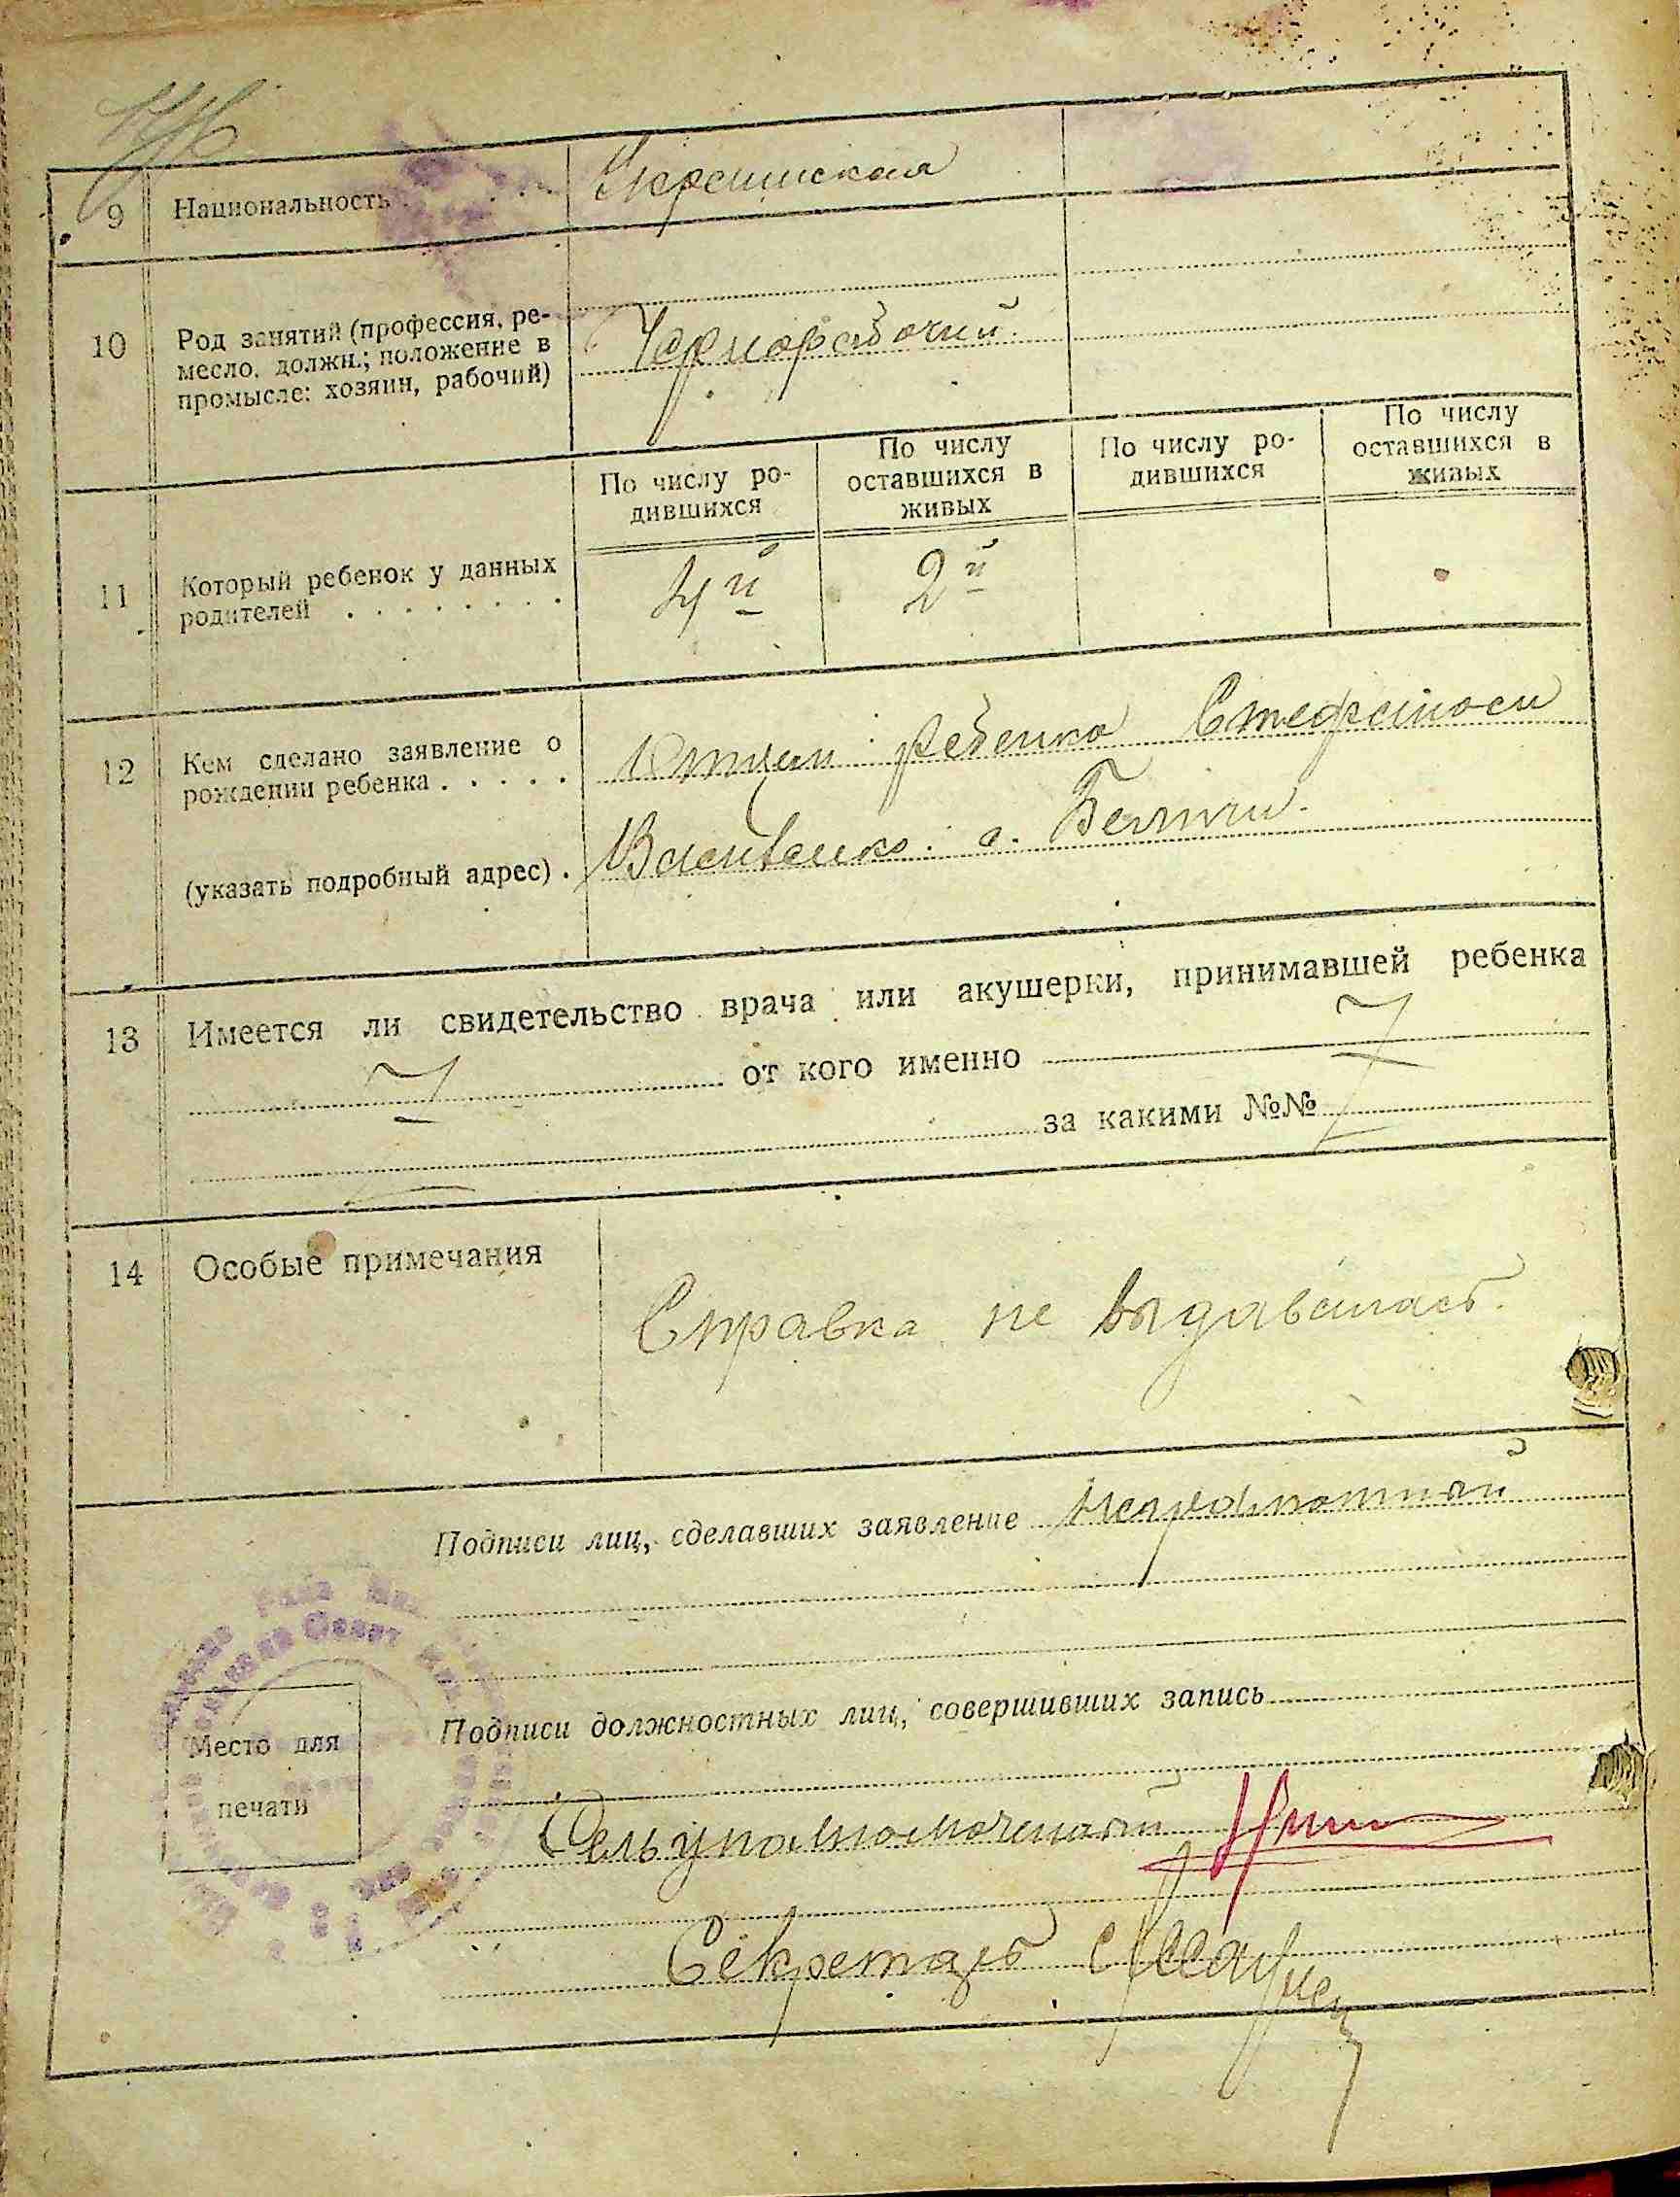 9 Национальность . . . Украинская
10 Род занятий (профессия, ре-
месло, должн.; положение в
промысле: хозяин, рабочий)
Чернорабочий.
По числу ро-
дившихся
По числу
оставшихся в
живых
По числу ро-
дившихся
По числу
оставшихся в
живых
11 Который ребенок у данных
родителей . . . . . . . .
4й 2й
12 Кем сделано заявление о
рождении ребенка . . . . .
Отцом ребенка Стефаном
(указать подробный адрес) .
с.
13 Имеется ли свидетельство врача или акушерки, принимавшей ребенка
от кого именно
за какими №№
14 Особые примечания
Справка не выдавалась.
Подписи лиц, сделавших заявление Неграмотный
Подписи должностных лиц, совершивших запись
Место для
печати
Секретарь